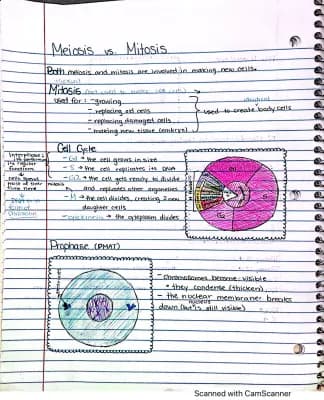 Meiosis vs. Mitosis
Both meiosis and mitosis are involved in making new cells.
Mitosis
used for : - growing
- replacing old cells
- replacing damaged cells
- making new tissue (embryo)
used to create body cells
Cell Cycle
- G1 → the cell grows in size
- S → the cell replicates its DNA
- G2 → the cell gets ready to divide
and replicates other organelles
- M → the cell divides, creating 2 new
daughter cells
- cytokinesis → the cytoplasm divides
Interphase:
functions
cells spend
most of their
time here
mitosis
G1
S
G2
Prophase (PMAT)
- chromosomes become visible
• they condense (thicken)
- the nuclear membrane breaks
nucleus
down (but is still visible)
Scanned with CamScanner